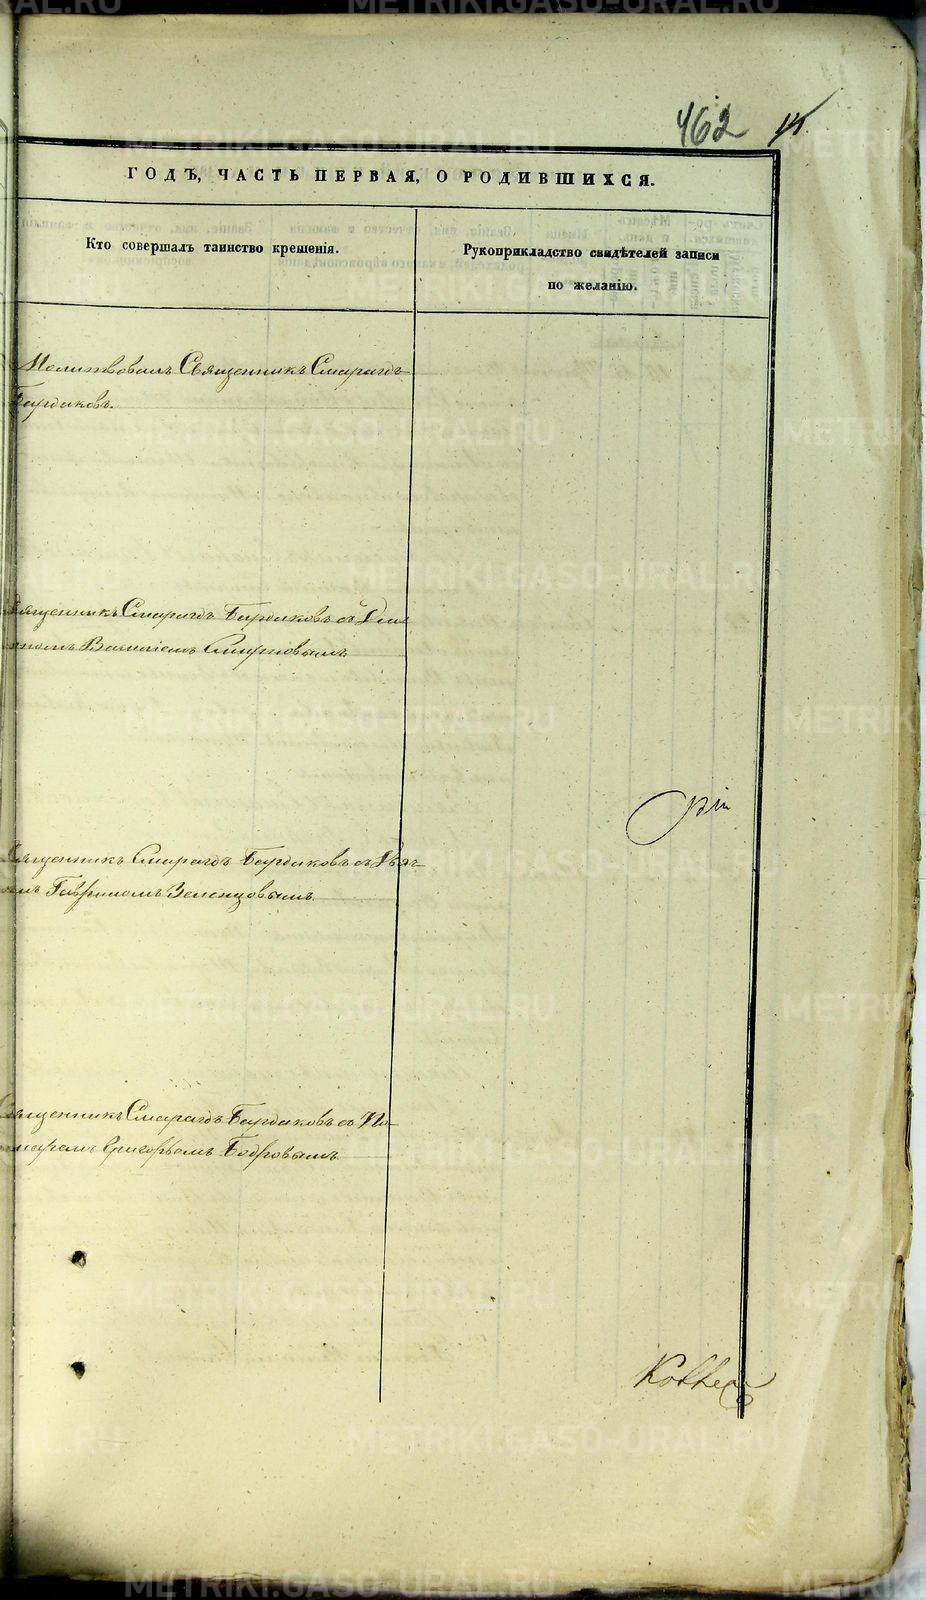 462
ГОДЪ, ЧАСТЬ ПЕРВАЯ, О РОДИВШИХСЯ.
Кто совершалъ таинство крещенія.
Рукоприкладство свидѣтелей записи
по желанію.
Молитвовалъ Священникъ Смарагдъ
Бардиковъ.
Священникъ Смарагдъ Бардиковъ съ
Василіемъ Смирновымъ
Священникъ Смарагдъ Бардиковъ съ Дьяч-
Гавріиломъ Зеленцовымъ
Священникъ Смарагдъ Бардиковъ съ По-
номаремъ Григорьемъ Бобровымъ
METRIKI.GASO-URAL.RU